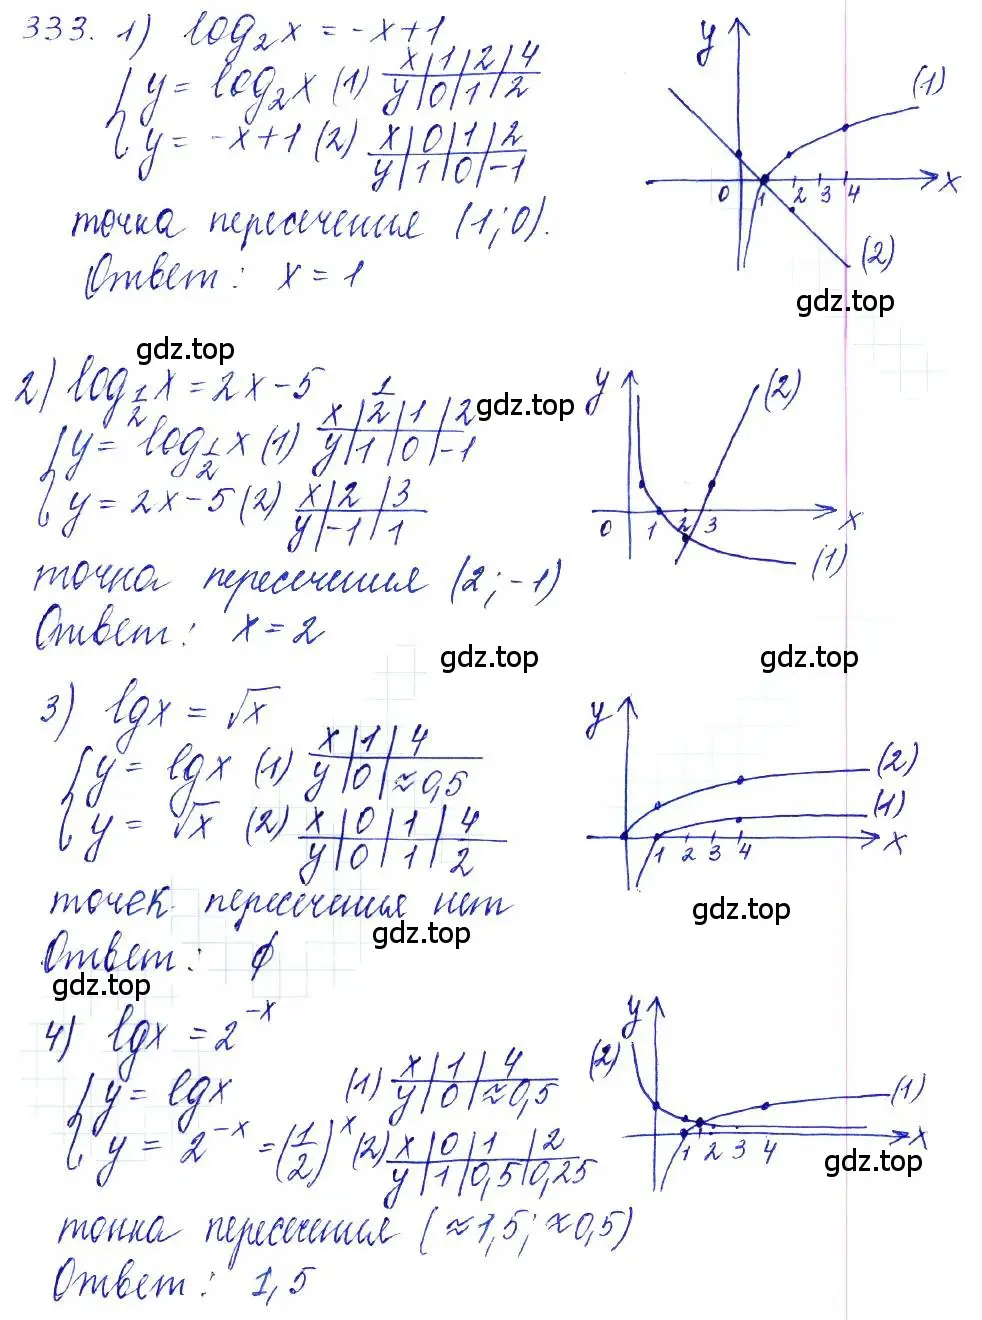 333. 1) log₂x = -x+1
{ y = log₂x (1) x | 1 | 2 | 4
y | 0 | 1 | 2
{ y = -x+1 (2) x | 0 | 1 | 2
y | 1 | 0 | -1
точка пересечения (1; 0).
Ответ: x = 1
y
(1)
0 1 2 3 4 x
(2)
gdz.top
gdz.top
2) log_{1/2} x = 2x-5
{ y = log_{1/2} x (1) x | 1/2 | 1 | 2
y | 1 | 0 | -1
gdz.top
{ y = 2x-5 (2) x | 2 | 3
y | -1 | 1
точка пересечения (2; -1)
Ответ: x = 2
y
(2)
0 1 2 3 x
(1)
gdz.top
gdz.top
3) lgx = √x
{ y = lgx (1) x | 1 | 4
y | 0 | ≈0,5
{ y = √x (2) x | 0 | 1 | 4
y | 0 | 1 | 2
точек пересечения нет
Ответ: ϕ
y
(2)
(1)
1 2 3 4 x
gdz.top
gdz.top
gdz.top
4) lgx = 2^{-x}
{ y = lgx (1) x | 1 | 4
y | 0 | ≈0,5
{ y = 2^{-x} = (1/2)^x (2) x | 0 | 1 | 2
y | 1 | 0,5 | 0,25
точка пересечения (≈1,5; ≈0,5)
Ответ: 1,5
y
(2)
(1)
1 2 3 4 x
gdz.top